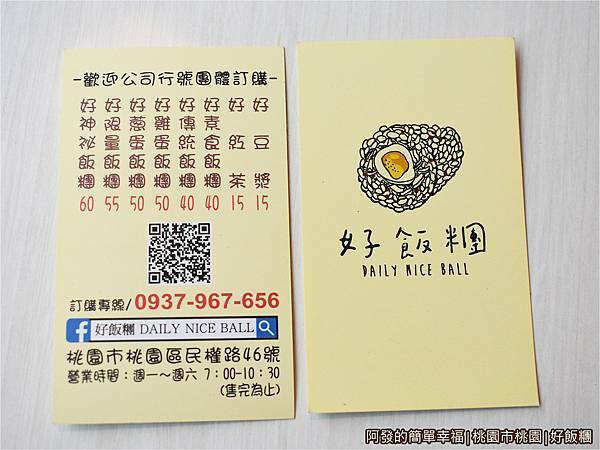 -歡迎公司行號團體訂購-
好神祕飯糰 60
好限量飯糰 55
好蔥蛋飯糰 50
好雞蛋飯糰 50
好傳統飯糰 40
好素食飯糰 40
好紅茶 15
好豆漿 15
訂購專線/0937-967-656
f 好飯糰 DAILY NICE BALL
桃園市桃園區民權路46號
營業時間：週一～週六 7：00-10：30
(售完為止)
好飯糰
DAILY NICE BALL
阿發的簡單幸福|桃園市桃園|好飯糰